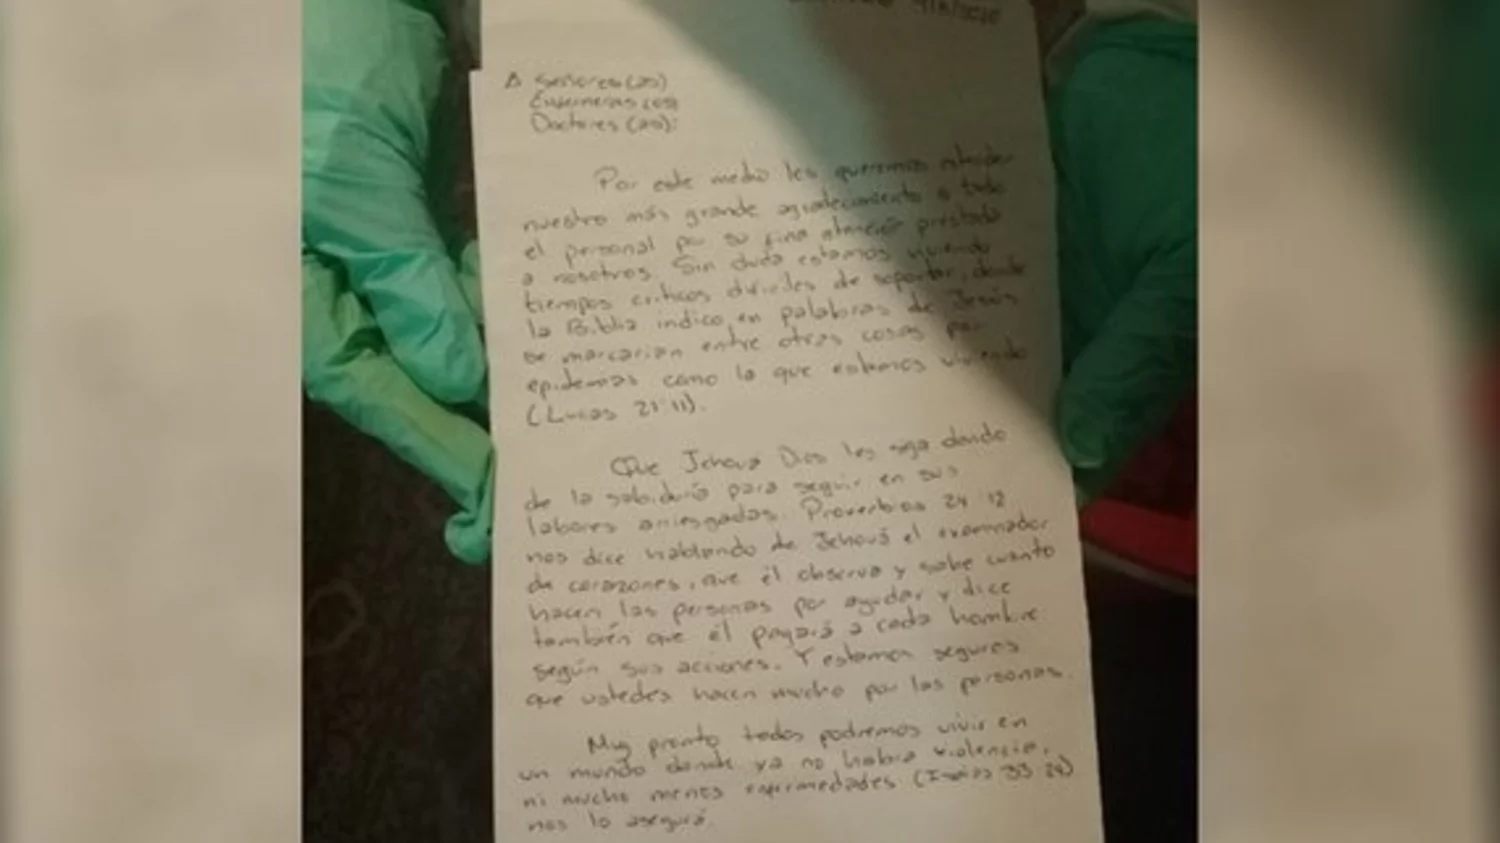 A Señores(as)
Enfermeras(os)
Doctores(as):
Por este medio les queremos extender
nuestro más grande agradecimiento a todo
el personal por su fina atención prestada
a nosotros. Sin duda estamos viviendo
tiempos criticos dificiles de soportar, donde
la Biblia indico, en palabras de Jesús
se marcarian entre otras cosas por
epidemias como la que estamos viviendo
(Lucas 21:11).
Que Jehová Dios les siga dando
de la sabiduría para seguir en sus
labores arriesgadas. Proverbios 24:12
nos dice hablando de Jehová el examinador
de corazones, que él observa y sabe cuanto
hacen las personas por ayudar y dice
también que él pagará a cada hombre
según sus acciones. Y estamos seguros
que ustedes hacen mucho por las personas.
Muy pronto todos podremos vivir en
un mundo donde ya no habra violencia,
ni mucho menos enfermedades (Isaías 33:24)
nos lo asegura.